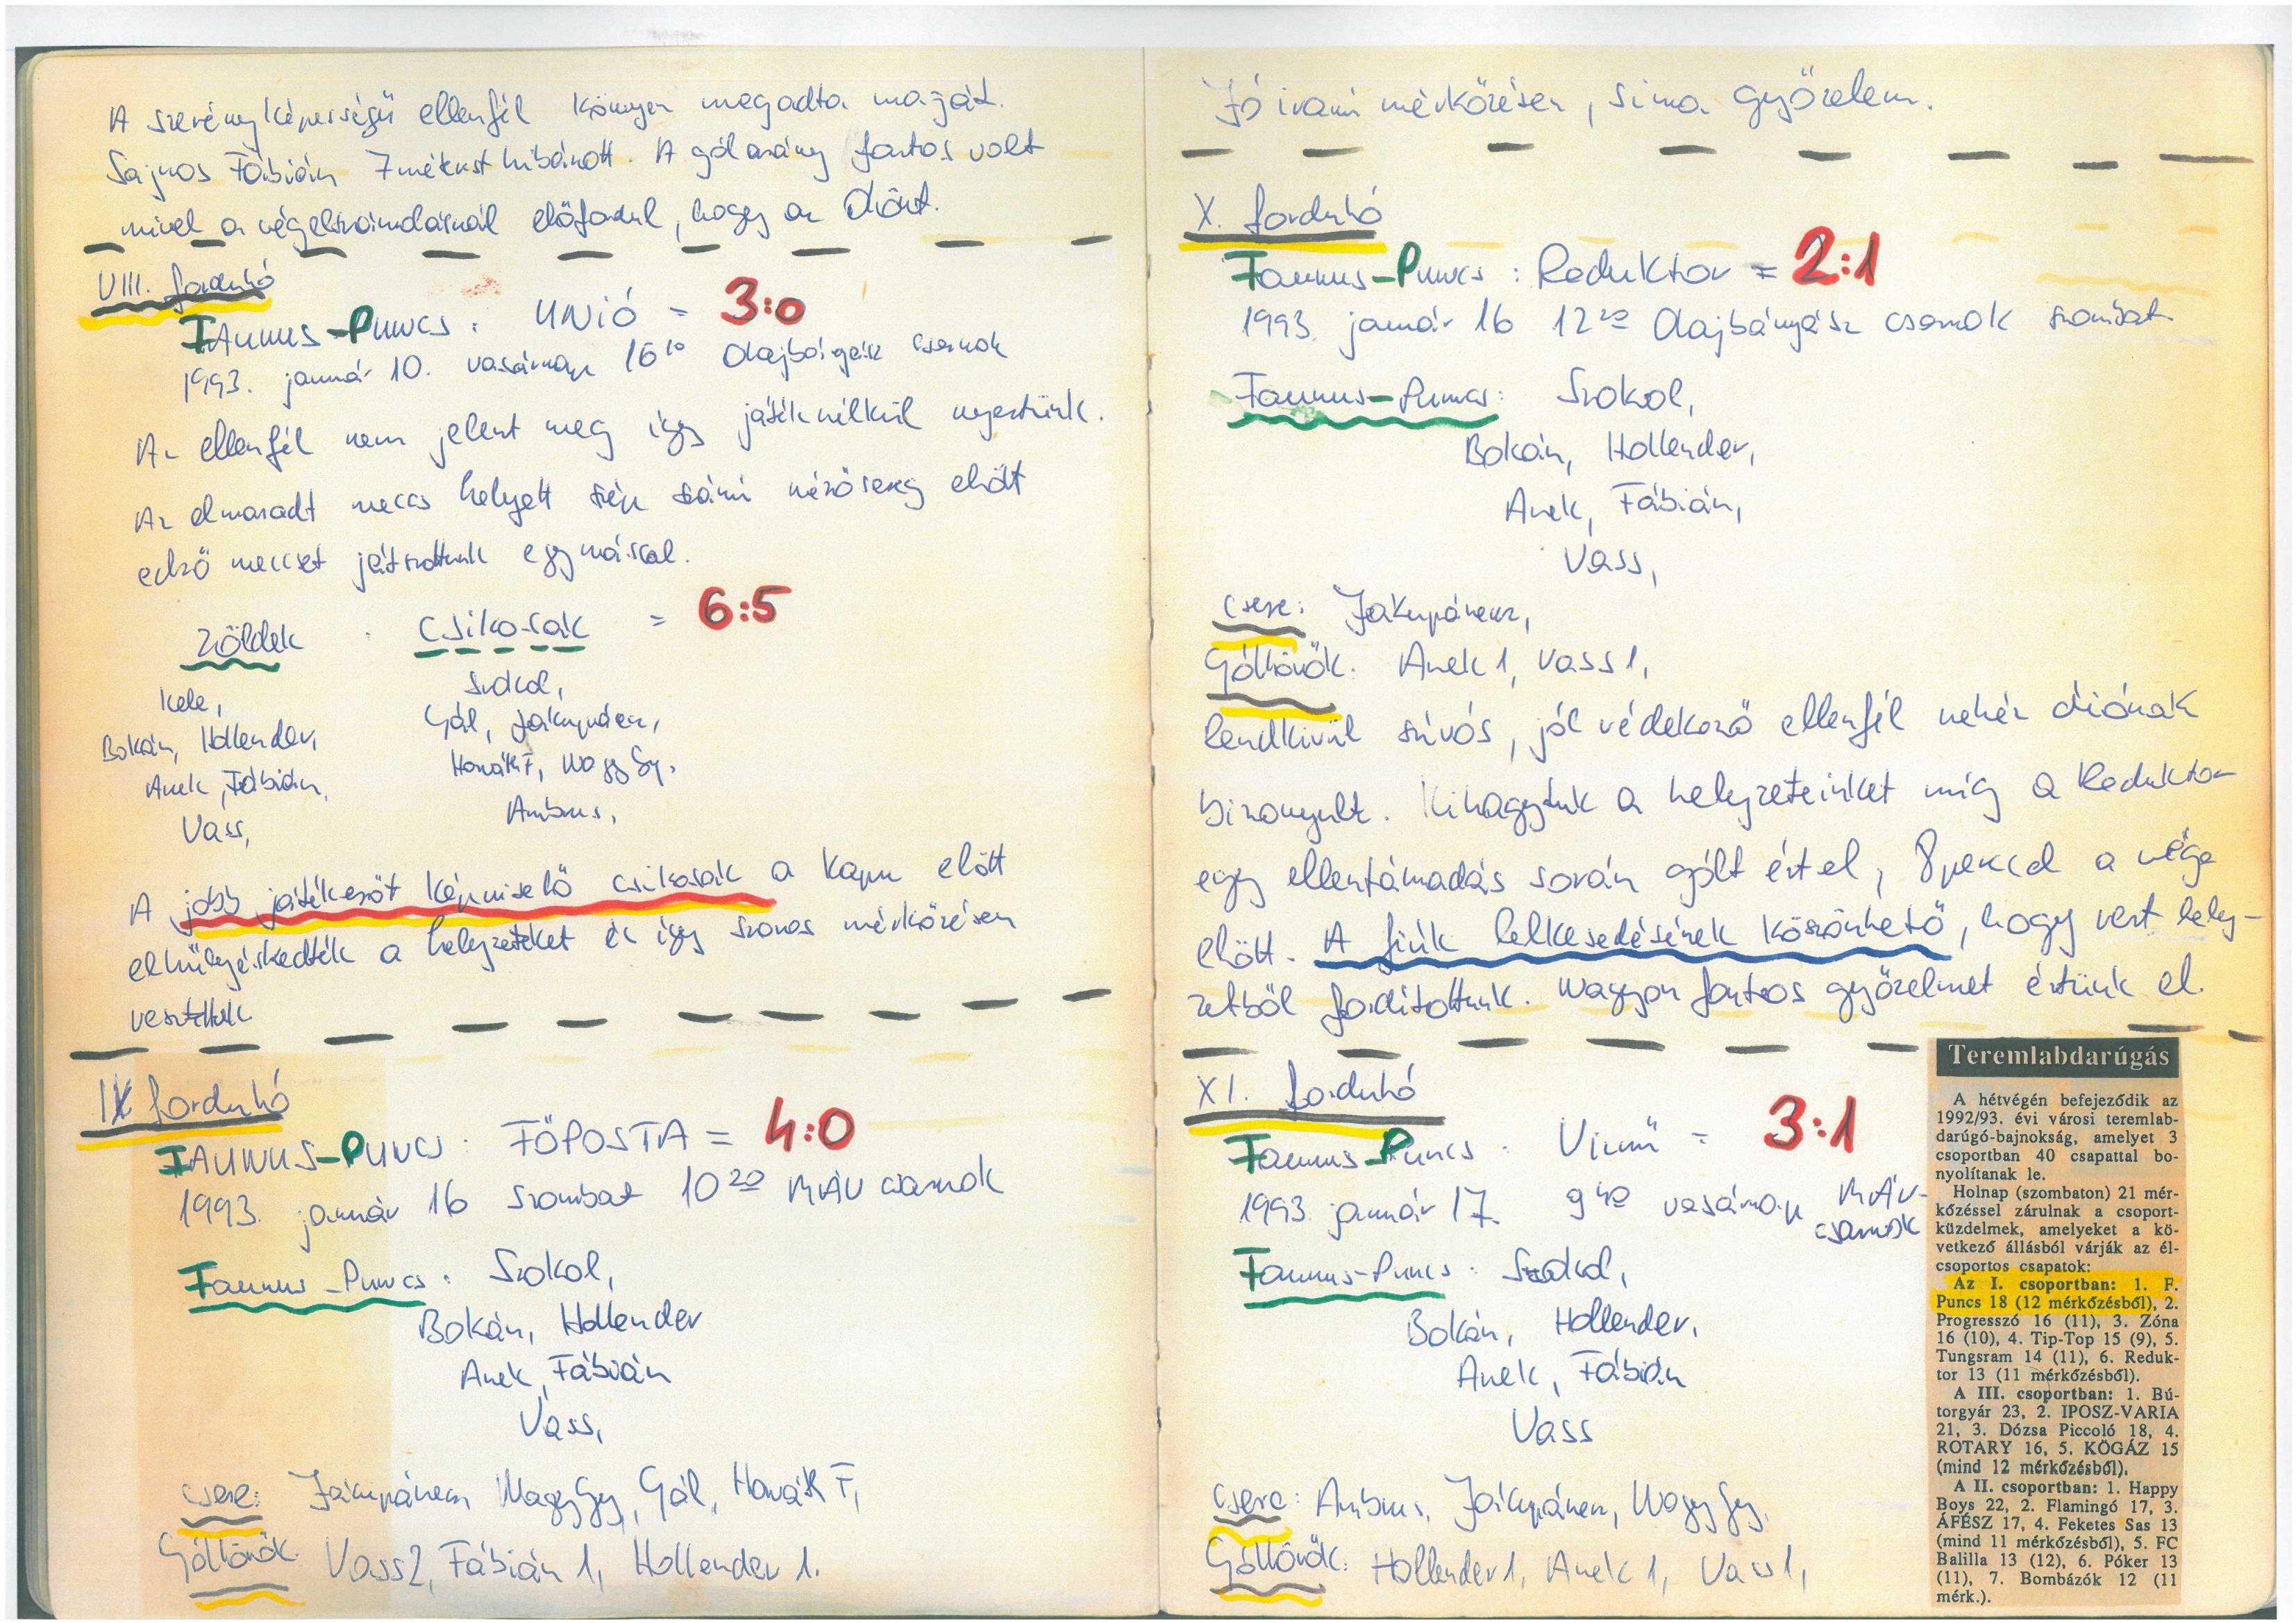 A szerényképességű ellenfél könnyen megadta magát.
Sajnos Fábián 7 méterest hibázott. A gólarány fontos volt
mivel a végelszámolásnál előfordul, hogy az dönt.
VIII. forduló
FAUNUS-PUNCS : UNIÓ = 3:0
1993. január 10. vasárnap 16 10 Olajbányász csarnok
Az ellenfél nem jelent meg így játék nélkül nyertünk.
Az elmaradt meccs helyett szép számú nézősereg előtt
edző meccset játszottunk egymással.
Zöldek : Csíkosak = 6:5
Kele,
Bokán, Hollender,
Anek, Fábián,
Vass,
Szokol,
Gál, Jákupánecz,
Horváth F, Nagy Gy,
Ambrus,
A jobb játékerőt képviselő csíkosak a kapu előtt
elhülyéskedték a helyzeteket és így szoros mérkőzésen
vesztettek
IX forduló
FAUNUS-PUNCS : FŐPOSTA = 4:0
1993. január 16 szombat 10 20 MÁV csarnok
Faunus-Puncs : Szokol,
Bokán, Hollender
Anek, Fábián
Vass,
csere: Jákupánecz Nagy Gy, Gál, Horváth F,
Góllövők: Vass 2, Fábián 1, Hollender 1.
Jó iramú mérkőzésen, sima győzelem.
X. forduló
Faunus-Puncs : Reduktor = 2:1
1993. január 16 12 20 Olajbányász csarnok szombat
Faunus-Puncs: Szokol,
Bokán, Hollender,
Anek, Fábián,
Vass,
csere: Jákupánecz,
Góllövők: Anek 1, Vass 1,
Rendkívül szívós, jól védekező ellenfél nehéz diónak
bizonyult. Kihagytuk a helyzeteinket míg a Reduktor
egy ellentámadás során gólt ért el, 8 perccel a vége
előtt. A fiúk lelkesedésének köszönhető, hogy vert hely-
zetből fordítottunk. Nagyon fontos győzelmet értünk el.
XI. forduló
Faunus Puncs : Vizmű = 3:1
1993. január 17. 9 40 vasárnap MÁV-
csarnok
Faunus-Puncs : Szokol,
Bokán, Hollender,
Anek, Fábián
Vass
csere: Ambrus, Jákupánecz, Nagy Gy,
Góllövők: Hollender 1, Anek 1, Vass 1,
Teremlabdarúgás
A hétvégén befejeződik az
1992/93. évi városi teremlab-
darúgó-bajnokság, amelyet 3
csoportban 40 csapattal bo-
nyolítanak le.
Holnap (szombaton) 21 mér-
kőzéssel zárulnak a csoport-
küzdelmek, amelyeket a kö-
vetkező állásból várják az él-
csoportos csapatok:
Az I. csoportban: 1. F.
Puncs 18 (12 mérkőzésből), 2.
Progresszó 16 (11), 3. Zóna
16 (10), 4. Tip-Top 15 (9), 5.
Tungsram 14 (11), 6. Reduk-
tor 13 (11 mérkőzésből).
A III. csoportban: 1. Bú-
torgyár 23, 2. IPOSZ-VARIA
21, 3. Dózsa Piccoló 18, 4.
ROTARY 16, 5. KÖGÁZ 15
(mind 12 mérkőzésből).
A II. csoportban: 1. Happy
Boys 22, 2. Flamingó 17, 3.
ÁFÉSZ 17, 4. Feketes Sas 13
(mind 11 mérkőzésből), 5. FC
Balilla 13 (12), 6. Póker 13
(11), 7. Bombázók 12 (11
mérk.).